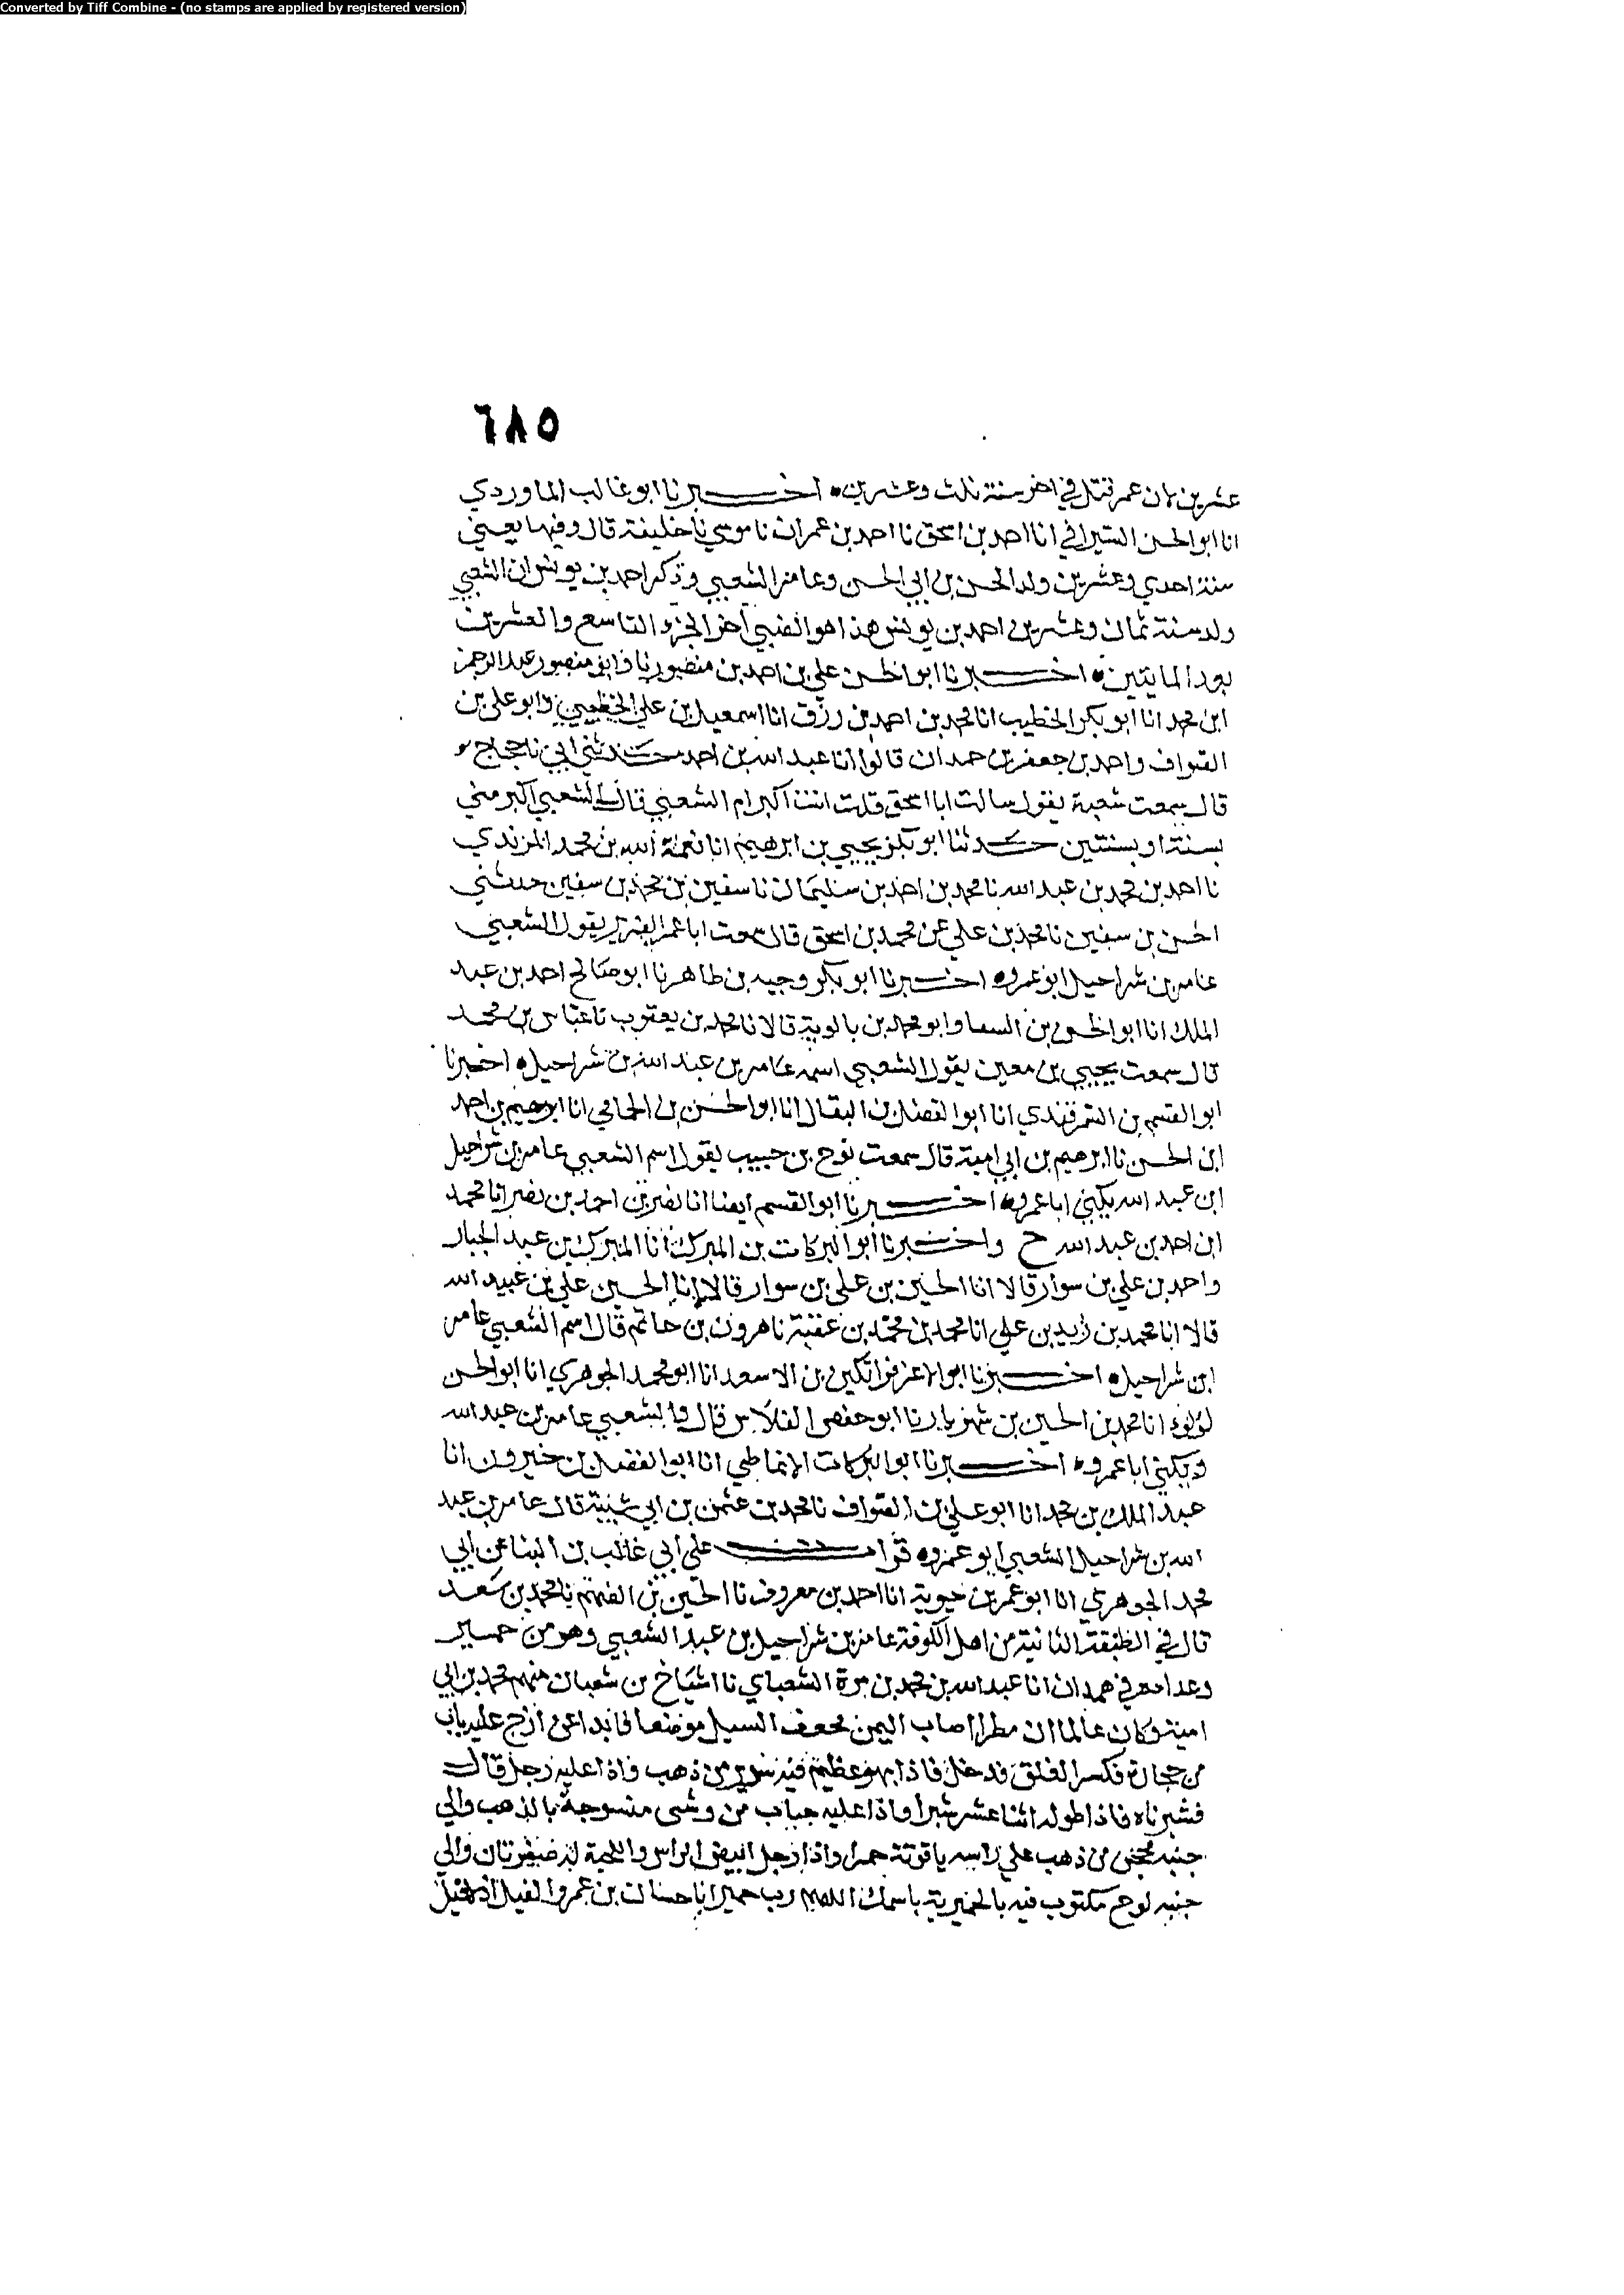 Converted by Tiff Combine - (no stamps are applied by registered version)
٦٨٥
عشرين لان عمر قتل في اخر سنة ثلث وعشرين اخبرنا ابو غالب الماوردي
انا ابو الحسن السيرافي انا احمد بن اسحق نا احمد بن عمران نا موسي نا خليفة قال وفيها يعني
سنة احدي وعشرين ولد الحسن بن ابي الحسن وعامر الشعبي وذكر احمد بن يونس ان الشعبي
ولد سنة ثمان وعشرين احمد بن يونس هذا هو الضبي اخر الجزء التاسع والعشرين
بعد المايتين اخبرنا ابو الحسن علي بن احمد بن منصور نا وابو منصور عبد الرحمن
ابن محمد انا ابو بكر الخطيب انا محمد بن احمد بن رزق انا اسمعيل بن علي الخطبي وابو علي بن
الصواف واحمد بن جعفر بن حمدان قالوا انا عبد الله بن احمد حدثني ابي نا حجاج
قال سمعت شعبة يقول سالت ابا اسحق قلت انت اكبر ام الشعبي قال الشعبي اكبر مني
بسنة او بسنتين حدثنا ابو بكر يحيي بن ابرهيم انا نعمة الله بن محمد المرندي
نا احمد بن محمد بن عبد الله نا محمد بن احمد بن سليمان نا سفين بن محمد بن سفين حدثني
الحسن بن سفين نا محمد بن علي عن محمد بن اسحق قال سمعت ابا عمر الضرير يقول الشعبي
عامر بن شراحيل ابو عمرو اخبرنا ابو بكر وجيه بن طاهر نا ابو صالح احمد بن عبد
الملك انا ابو الحسن بن السقا وابو محمد بن بالوية قالا نا محمد بن يعقوب نا عباس بن محمد
قال سمعت يحيي بن معين يقول الشعبي اسمه عامر بن عبد الله بن شراحيل اخبرنا
ابو القسم بن السمرقندي انا ابو الفضل بن البقال انا ابو الحسن بن الحمامي انا ابرهيم بن احمد
ابن الحسن نا ابرهيم بن ابي امية قال سمعت نوح بن حبيب يقول اسم الشعبي عامر بن شراحيل
ابن عبد الله يكني ابا عمرو اخبرنا ابو القسم ايضا انا نصر بن احمد بن نصر انا محمد
ابن احمد بن عبد الله ح واخبرنا ابو البركات بن المبرك انا المبرك بن عبد الجبار
واحمد بن علي بن سوار قالا انا الحسين بن علي بن سوار قالا انا الحسين علي بن عبيد الله
قالا انا محمد بن زيد بن علي انا محمد بن محمد بن عقبة نا هرون بن حاتم قال اسم الشعبي عامر
ابن شراحيل اخبرنا ابو الاعز قراتكين بن الاسعد انا ابو محمد الجوهري انا ابو الحسن
لولوء انا محمد بن الحسين بن شهريار نا ابو حفص الفلاس قال والشعبي عامر بن عبد الله
ويكني ابا عمرو اخبرنا ابو البركات الانماطي انا ابو الفضل بن خيرون انا
عبد الملك بن محمد انا ابو علي بن الصواف نا محمد بن عثمن بن ابي شيبة قال عامر بن عبد
الله بن شراحيل الشعبي ابو عمرو قرات علي ابي غالب بن البنا عن ابي
محمد الجوهري انا ابو عمر بن حيوية انا احمد بن معروف نا الحسين بن الفهم نا محمد بن سعد
قال في الطبقة الثانية من اهل الكوفة عامر بن شراحيل بن عبد الشعبي وهو من حمير
وعداده في همدان انا عبد الله بن محمد بن مرة الشعباي نا اشياخ من شعبان منهم محمد بن ابي
امية وكان عالما ان مطرا اصاب اليمن فجحف السيل موضعا فابدا عن ازج عليه باب
من حجارة فكسر الغلق فدخل فاذا بهو عظيم فيه سرير من ذهب واذا عليه رجل قال
فشبرناه فاذا طوله اثنا عشر شبرا واذا عليه جباب من وشي منسوجة بالذهب والي
جنبه محجن من ذهب علي راسه ياقوتة حمرا واذا رجل ابيض الراس واللحية له ضفيرتان والي
جنبه لوح مكتوب فيه بالحميرية باسمك اللهم رب حمير انا حسان بن عمرو القيل اذ لا قيل